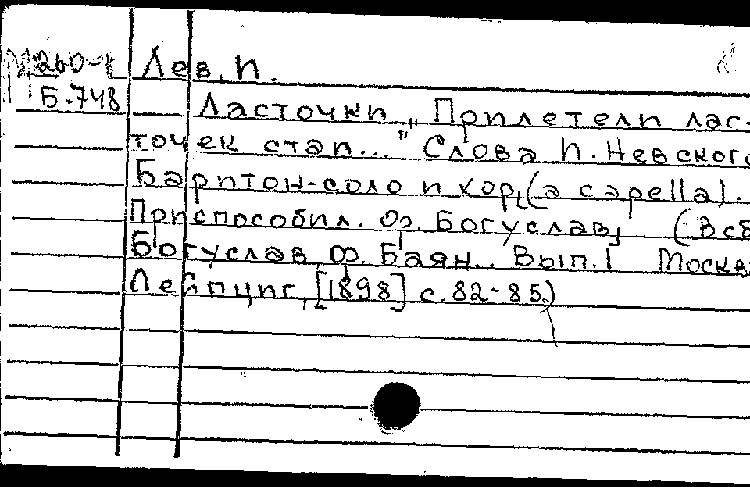 М260-1 Лев, И.
Б.748 Ласточки „Прилетели лас-
точек стаи..." Слова И. Невского
Баритон-соло и хор, (a capella).
Приспособил. Ф. Богуслав, (В сб
Богуслав, Ф. Баян. Вып. I Москва
Лейпциг, [1898] с. 82-85.)